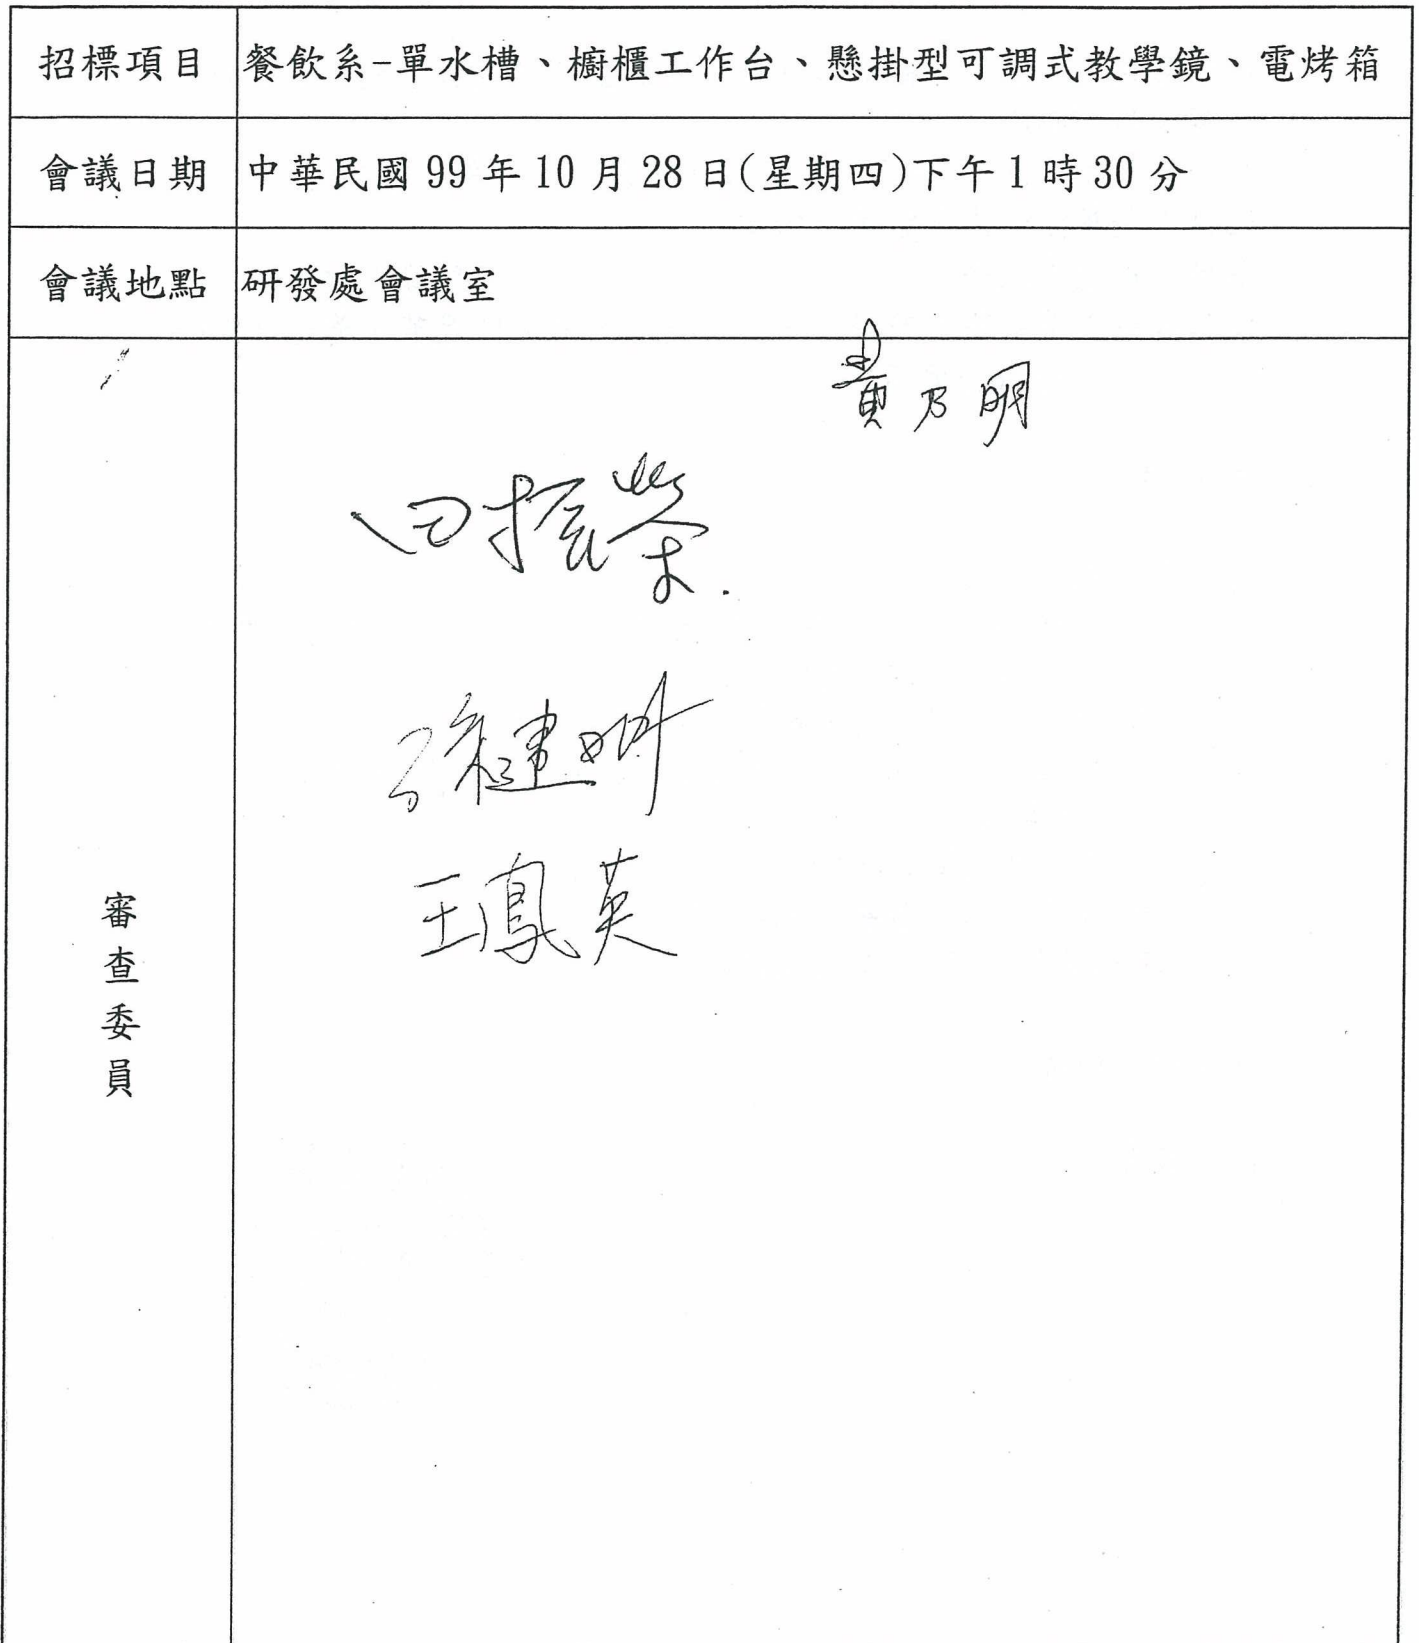 招標項目 餐飲系-單水槽、櫥櫃工作台、懸掛型可調式教學鏡、電烤箱
會議日期 中華民國 99 年 10 月 28 日(星期四)下午 1 時 30 分
會議地點 研發處會議室
審查委員
黃乃明
田振榮
王鳳英